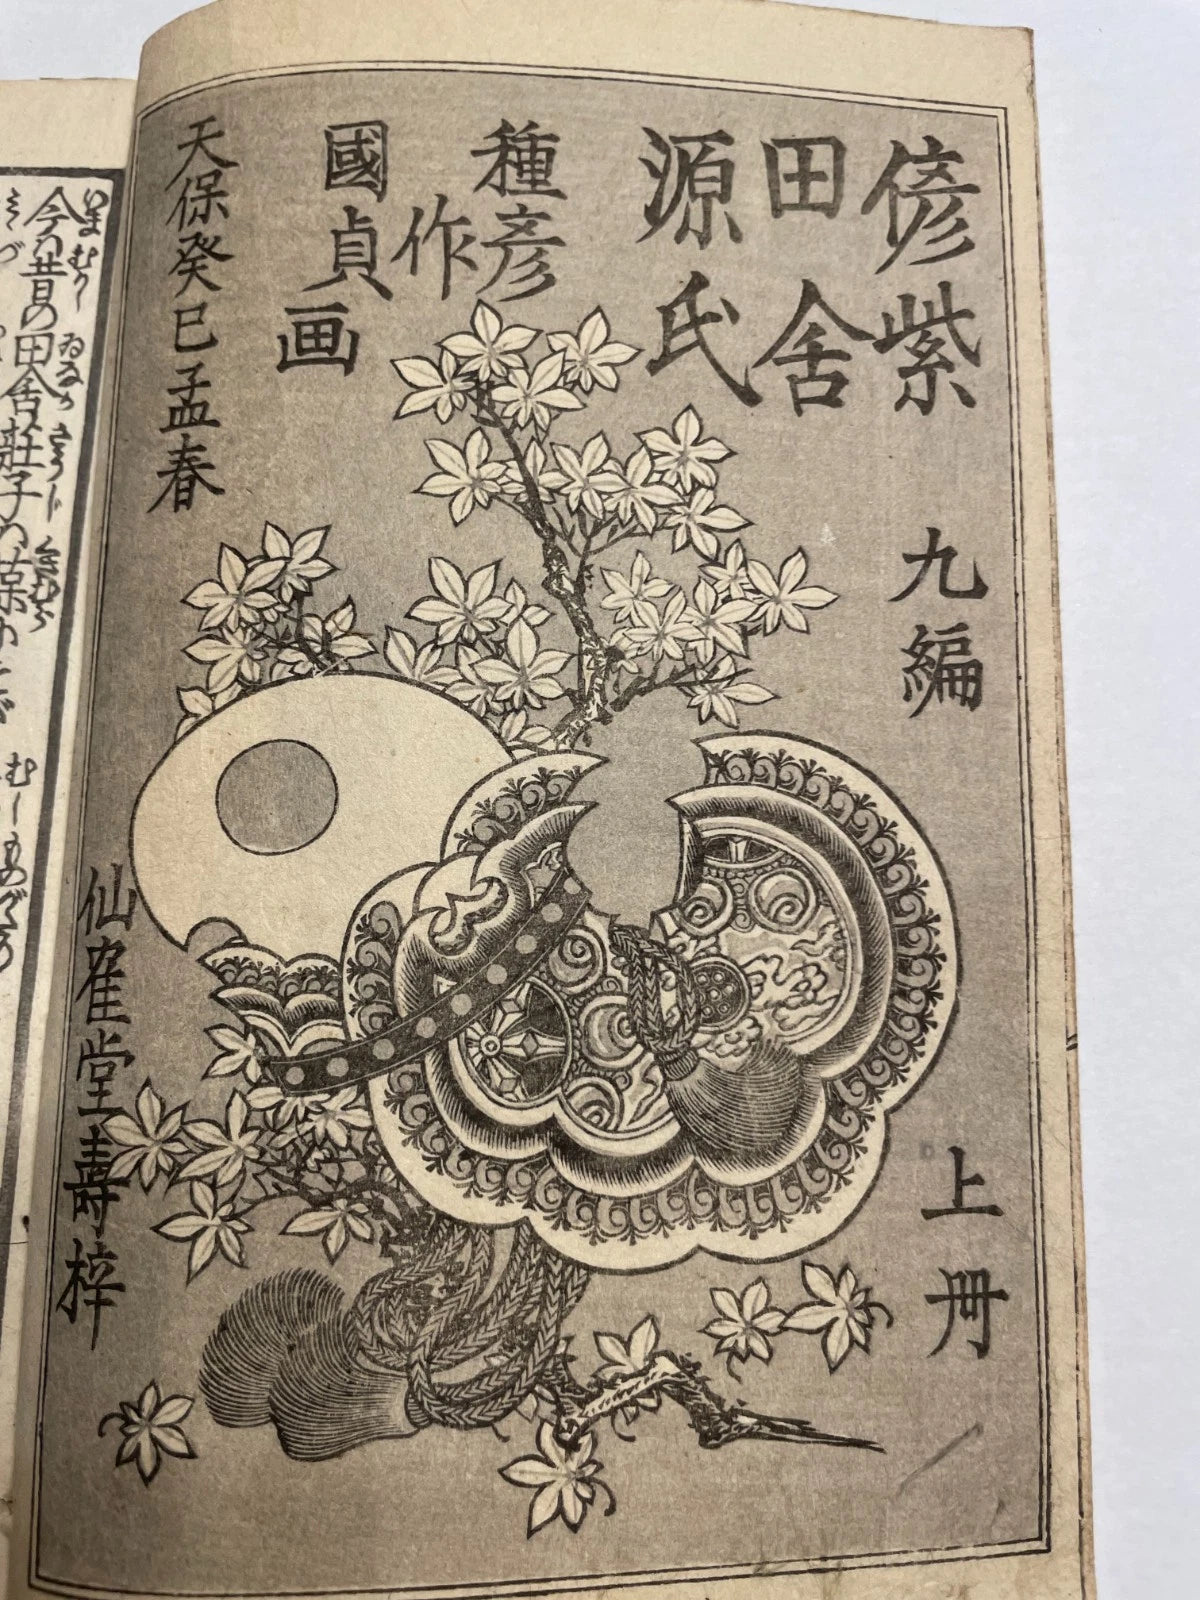 偐紫
田舎
源氏
九編
上冊
種彦
作
國貞
画
天保癸巳孟春
仙隺堂壽梓
今は昔の田舎荘子の葉